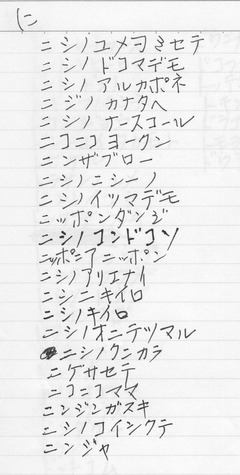 に
ニシノユメヲミセテ
ニシノドコマデモ
ニシノアルカポネ
ニジノカナタヘ
ニシノナースコール
ニコニコヨークン
ニンザブロー
ニシノニシーノ
ニシノイツマデモ
ニッポンダンジ
ニシノコンドコソ
ニッポニアニッポン
ニシノアリエナイ
ニシニキイロ
ニシノキイロ
ニシノオニテツマル
ニシノクニカラ
ニゲサセテ
ニコニコママ
ニンジンガスキ
ニシノコインクテ
ニンジャ